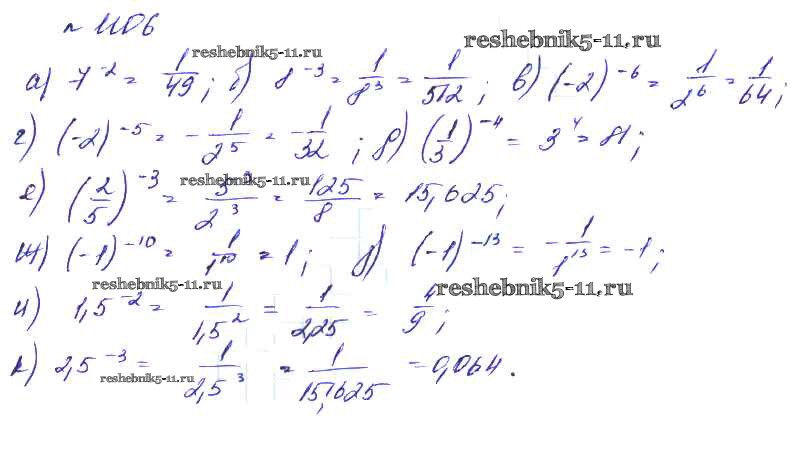 № 1106
reshebnik5-11.ru reshebnik5-11.ru
а) 7^-2 = 1/49; б) 8^-3 = 1/8^3 = 1/512; в) (-2)^-6 = 1/2^6 = 1/64;
г) (-2)^-5 = -1/2^5 = -1/32; д) (1/3)^-4 = 3^4 = 81;
reshebnik5-11.ru
е) (2/5)^-3 = /2^3 = 125/8 = 15,625;
ж) (-1)^-10 = 1/1^10 = 1; з) (-1)^-13 = -1/1^13 = -1;
reshebnik5-11.ru reshebnik5-11.ru
и) 1,5^-2 = 1/1,5^2 = 1/2,25 = 4/9;
к) 2,5^-3 = 1/2,5^3 = 1/15,625 = 0,064.
reshebnik5-11.ru